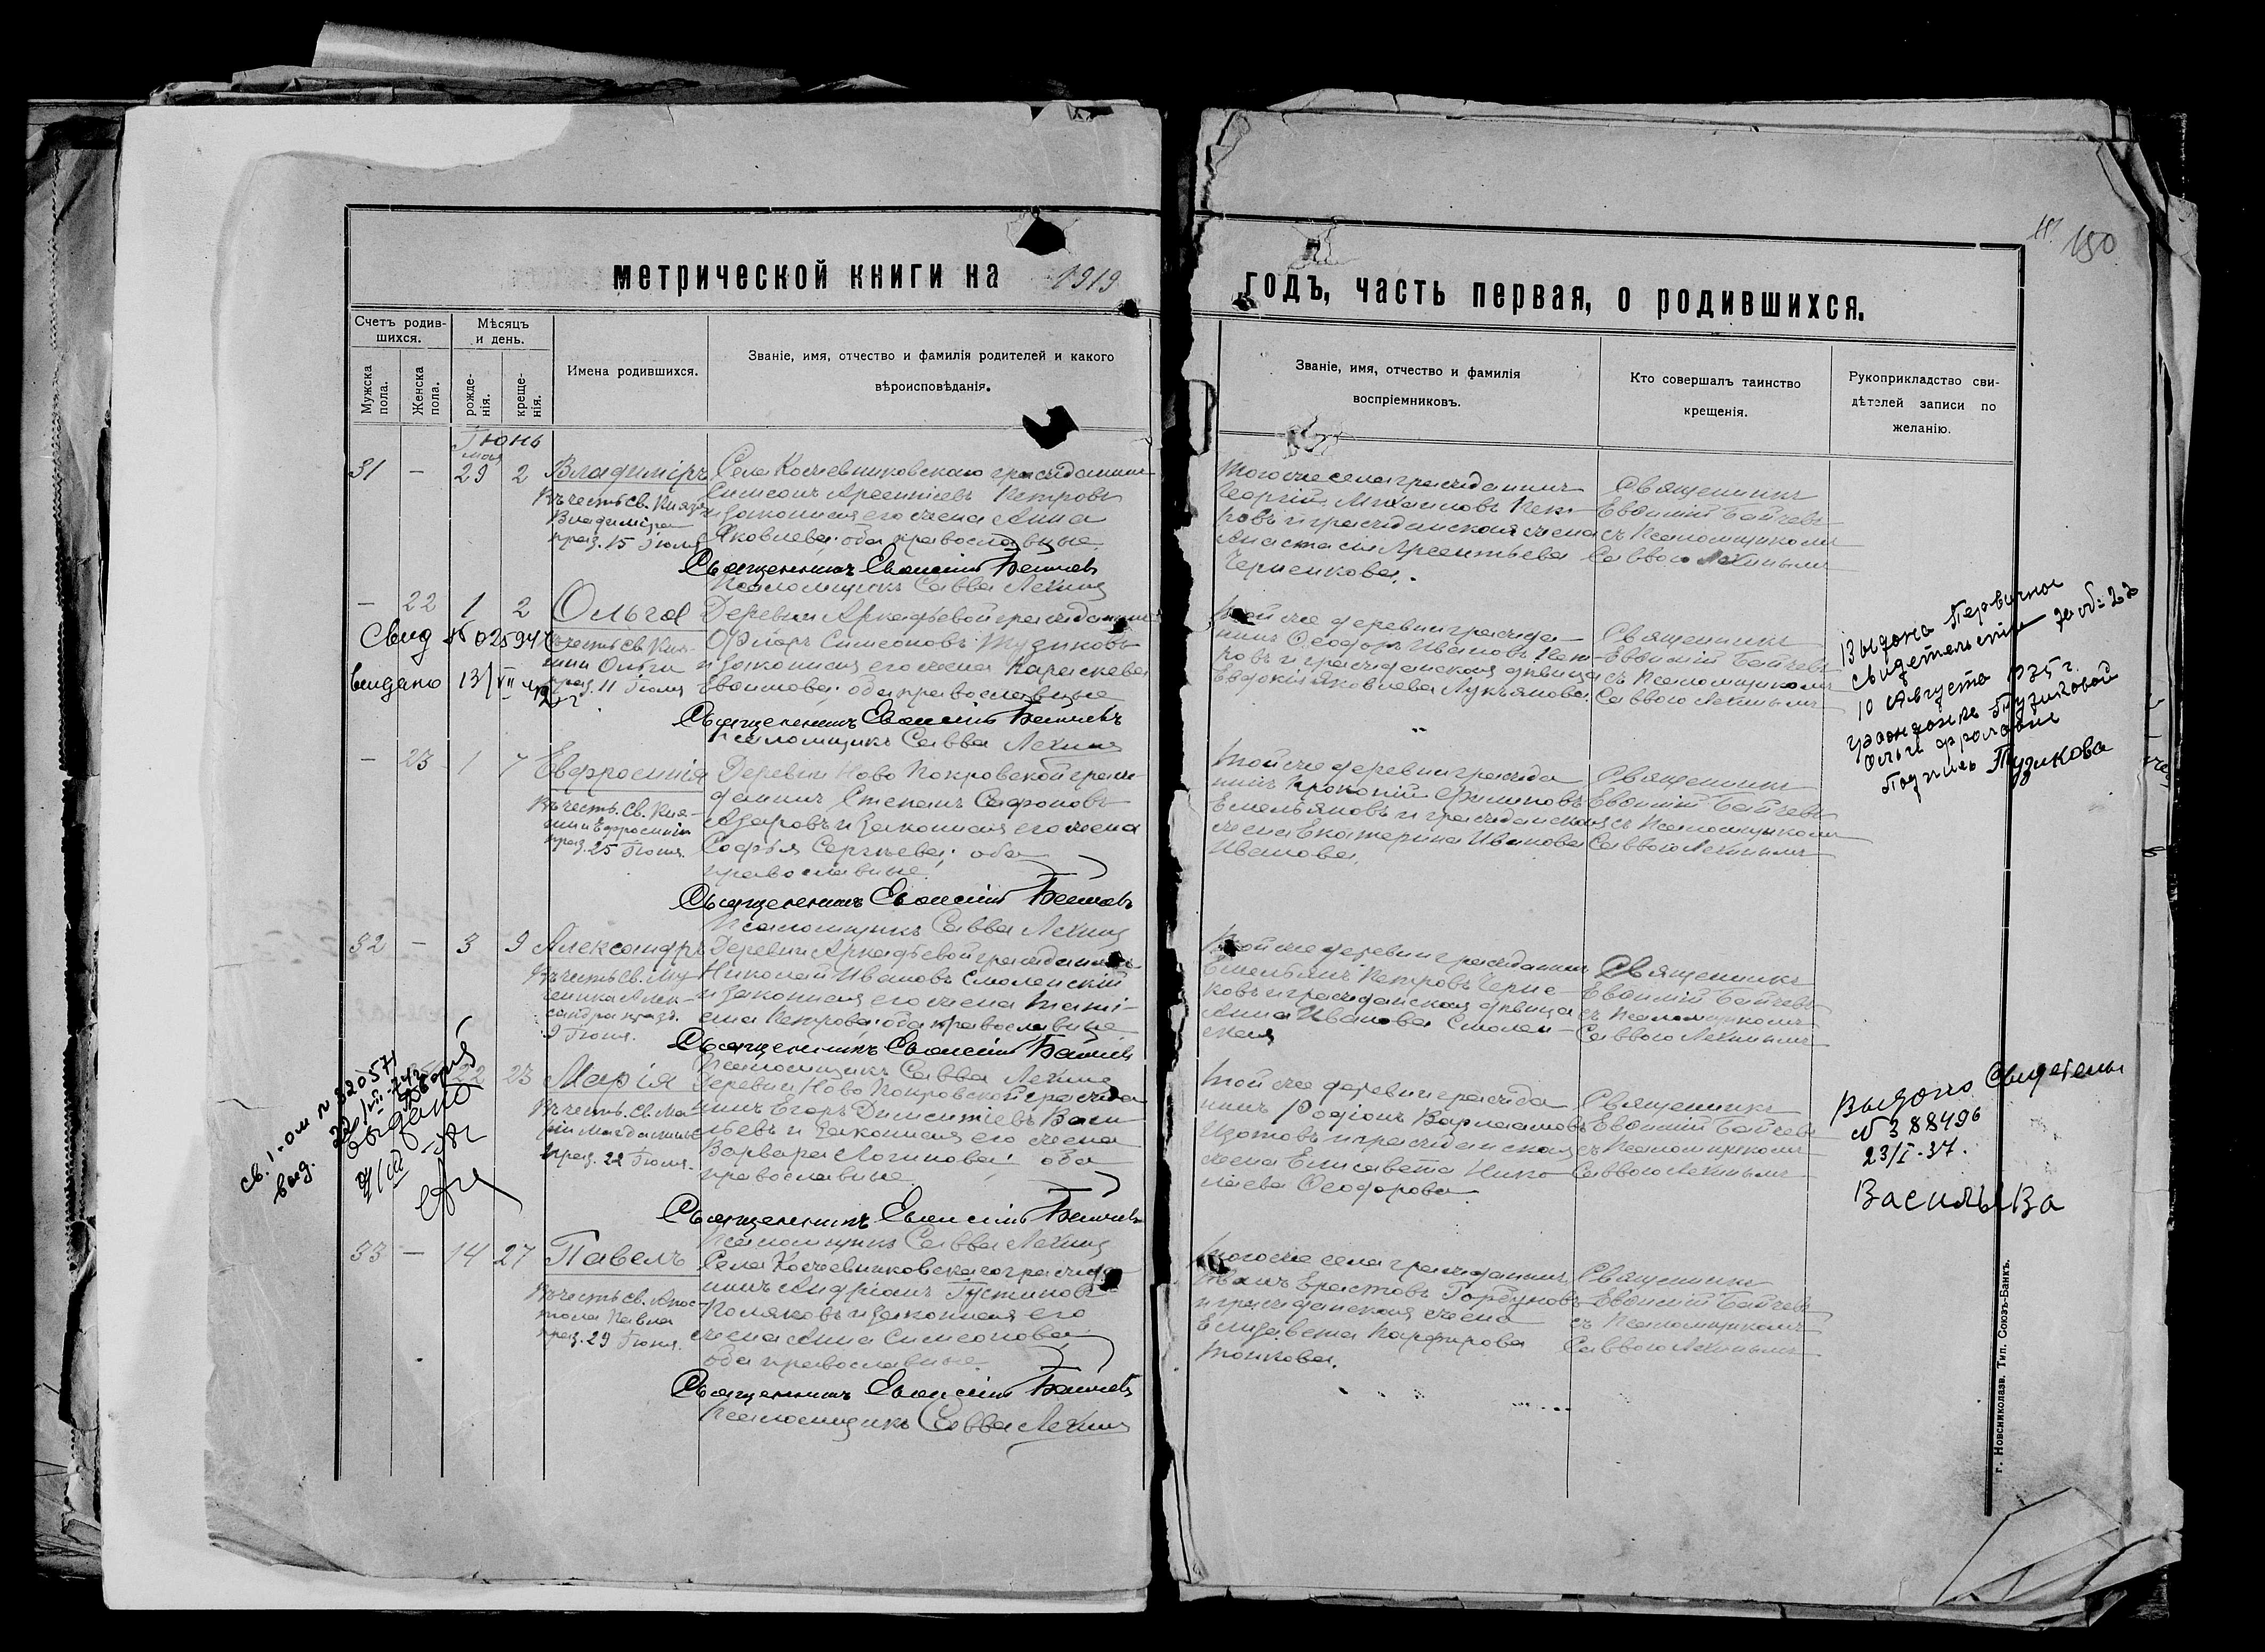 метрической книги на 1919
годъ, часть первая, о родившихся.
150
Счетъ родив-
шихся.
Мужска пола.
Женска пола.
Мѣсяцъ
и день.
рожде-
нія.
креще-
нія.
Имена родившихся.
Званіе, имя, отчество и фамилія родителей и какого
вѣроисповѣданія.
Званіе, имя, отчество и фамилія
воспріемниковъ.
Кто совершалъ таинство
крещенія.
Рукоприкладство сви-
дѣтелей записи по
желанію.
Іюнь
31 — 29 2
Владиміръ
Въ честь св. Князя
Владиміра
праз. 15 Іюля
Села Кожевниковскаго гражданинъ
Симеонъ Арсентіевъ Петровъ
и законная его жена Анна
Яковлева; оба православные.
Священникъ Евѳимій
Псаломщикъ Савва Лехинъ
Того же села гражданинъ
Георгій Михаиловъ Пет-
ровъ и гражданская жена
Анастасія Арсентьева
Черненкова.
Священникъ
Евѳимій
съ Псаломщикомъ
Саввою Лехинымъ
— 22 1 2
Ольга
честь св. Кня-
гини Ольги
праз. 11 Іюля
Деревни Аркадьевой гражданинъ
Флоръ Симеоновъ Тузиковъ
и законная его жена Параскева
Евѳимова; оба православные
Священникъ Евѳимій
Псаломщикъ Савва Лехинъ
Свид № 025944
выдано 13/VII
Той же деревни гражда-
нинъ Ѳеодоръ Ивановъ Пет-
ровъ и гражданская дѣвица
Евдокія Яковлева Лукьянова.
Священникъ
Евѳимій
съ Псаломщикомъ
Саввою Лехинымъ
Выдано Первичное
свидетельство за № 22
10 Августа 1935 г.
гражданке Тузиковой
Ольги Фроловне
Подпись Тузикова
— 23 1 7
Евфросинія
Въ честь св. Кня-
гини Ефросиніи
праз. 25 Іюня.
Деревни Ново Покровской граж-
данинъ Степанъ Сафоновъ
Азаровъ и законная его жена
Софья Сергѣева; оба
православные.
Священникъ Евѳимій
Псаломщикъ Савва Лехинъ
Той же деревни гражда
нинъ Прокопій Филиповъ
Емельяновъ и гражданская
жена Екатерина Иванова
Иванова.
Священникъ
Евѳимій
съ Псаломщикомъ
Саввою Лехинымъ
32 — 3 9
Александръ
Въ честь св. Му-
ченика Алек-
сандра праз.
9 Іюня.
Деревни Аркадьевой гражданинъ
Николай Ивановъ Смоленскій
и законная его жена Тати-
ана Петрова; оба православные
Священникъ Евѳимій
Псаломщикъ Савва Лехинъ
Той же деревни гражданинъ
Емельянъ Петровъ Черне-
ковъ и гражданская дѣвица
Анна Иванова Смолен-
ская
Священникъ
Евѳимій
съ Псаломщикомъ
Саввою Лехинымъ
22 23
Марія
Въ честь св. Ма-
ріи Магдалины
праз. 22 Іюля.
Деревни Ново Покровской гражда
нинъ Егоръ Дементіевъ Васи-
льевъ и законная его жена
Варвара Логинова; оба
православные.
Священникъ Евѳимій
Псаломщикъ Савва Лехинъ
выд.
выдано
Той же деревни гражда
нинъ Родіонъ Варлаамовъ
Изотовъ и гражданская
жена Елисавета Нико-
лаева Ѳеодорова.
Священникъ
Евѳимій
съ Псаломщикомъ
Саввою Лехинымъ
Выдано Свидетель
№ 388496
23/I-37.
Васильева
33 — 14 27
Павелъ
Въ честь св. Апос-
тола Павла
праз. 29 Іюня.
Села Кожевниковскаго гражда
нинъ Андріанъ Густиновъ
Поляковъ и законная его
жена Анна Симеонова;
оба православные.
Священникъ Евѳимій
Псаломщикъ Савва Лехинъ
Того же села гражданинъ
Иванъ Ерастовъ Горбуновъ
и гражданская жена
Елизавета Парфирова
Священникъ
Евѳимій
съ Псаломщикомъ
Саввою Лехинымъ
г. Новониколаев. Тип. Союзъ-Банкъ.